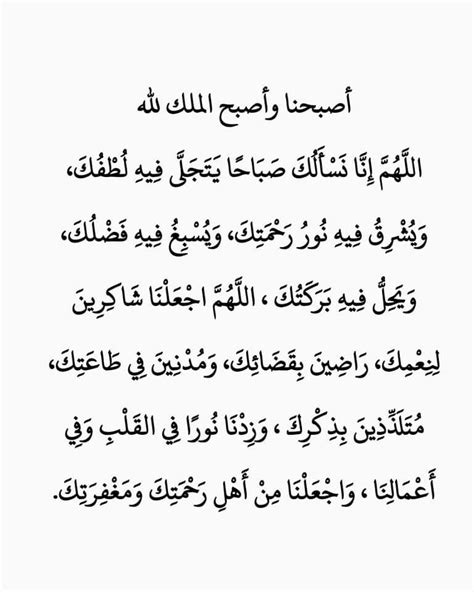 أصبحنا وأصبح الملك لله
اللَّهُمَّ إِنَّا نَسْأَلُكَ صَبَاحًا يَتَجَلَّى فِيهِ لُطْفُكَ،
وَيُشْرِقُ فِيهِ نُورُ رَحْمَتِكَ، وَيُسْبِغُ فِيهِ فَضْلُكَ،
وَيَحِلُّ فِيهِ بَرَكَتُكَ ، اللَّهُمَّ اجْعَلْنَا شَاكِرِينَ
لِنِعْمِكَ، رَاضِينَ بِقَضَائِكَ، وَمُدْنِينَ فِي طَاعَتِكَ،
مُتَلَذِّذِينَ بِذِكْرِكَ ، وَزِدْنَا نُورًا فِي القَلْبِ وَفِي
أَعْمَالِنَا ، وَاجْعَلْنَا مِنْ أَهْلِ رَحْمَتِكَ وَمَغْفِرَتِكَ.